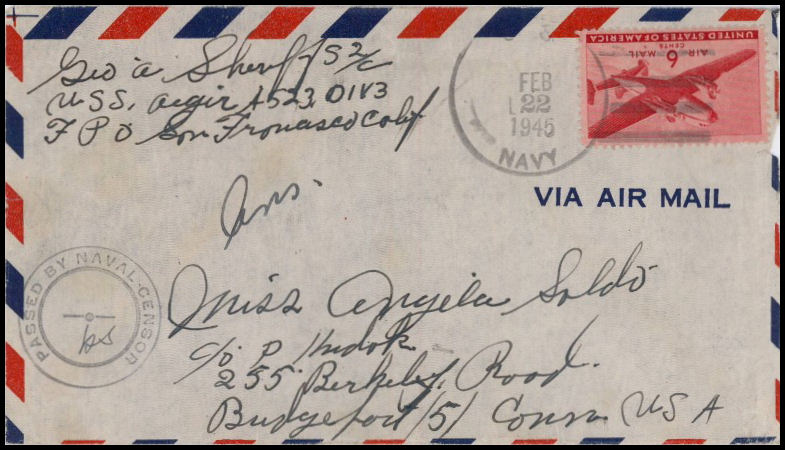 Geo A Sheriff S2/c
USS. Aegir AS23. DIV3
F P O San Francisco Calif
UNITED STATES OF AMERICA
AIR 6 MAIL
CENTS
FEB
22
1945
NAVY
VIA AIR MAIL
Ans.
PASSED BY NAVAL CENSOR
Miss Angela Soldo
c/o P
255 Berkeley Road.
Bridgeport /5/ Conn USA